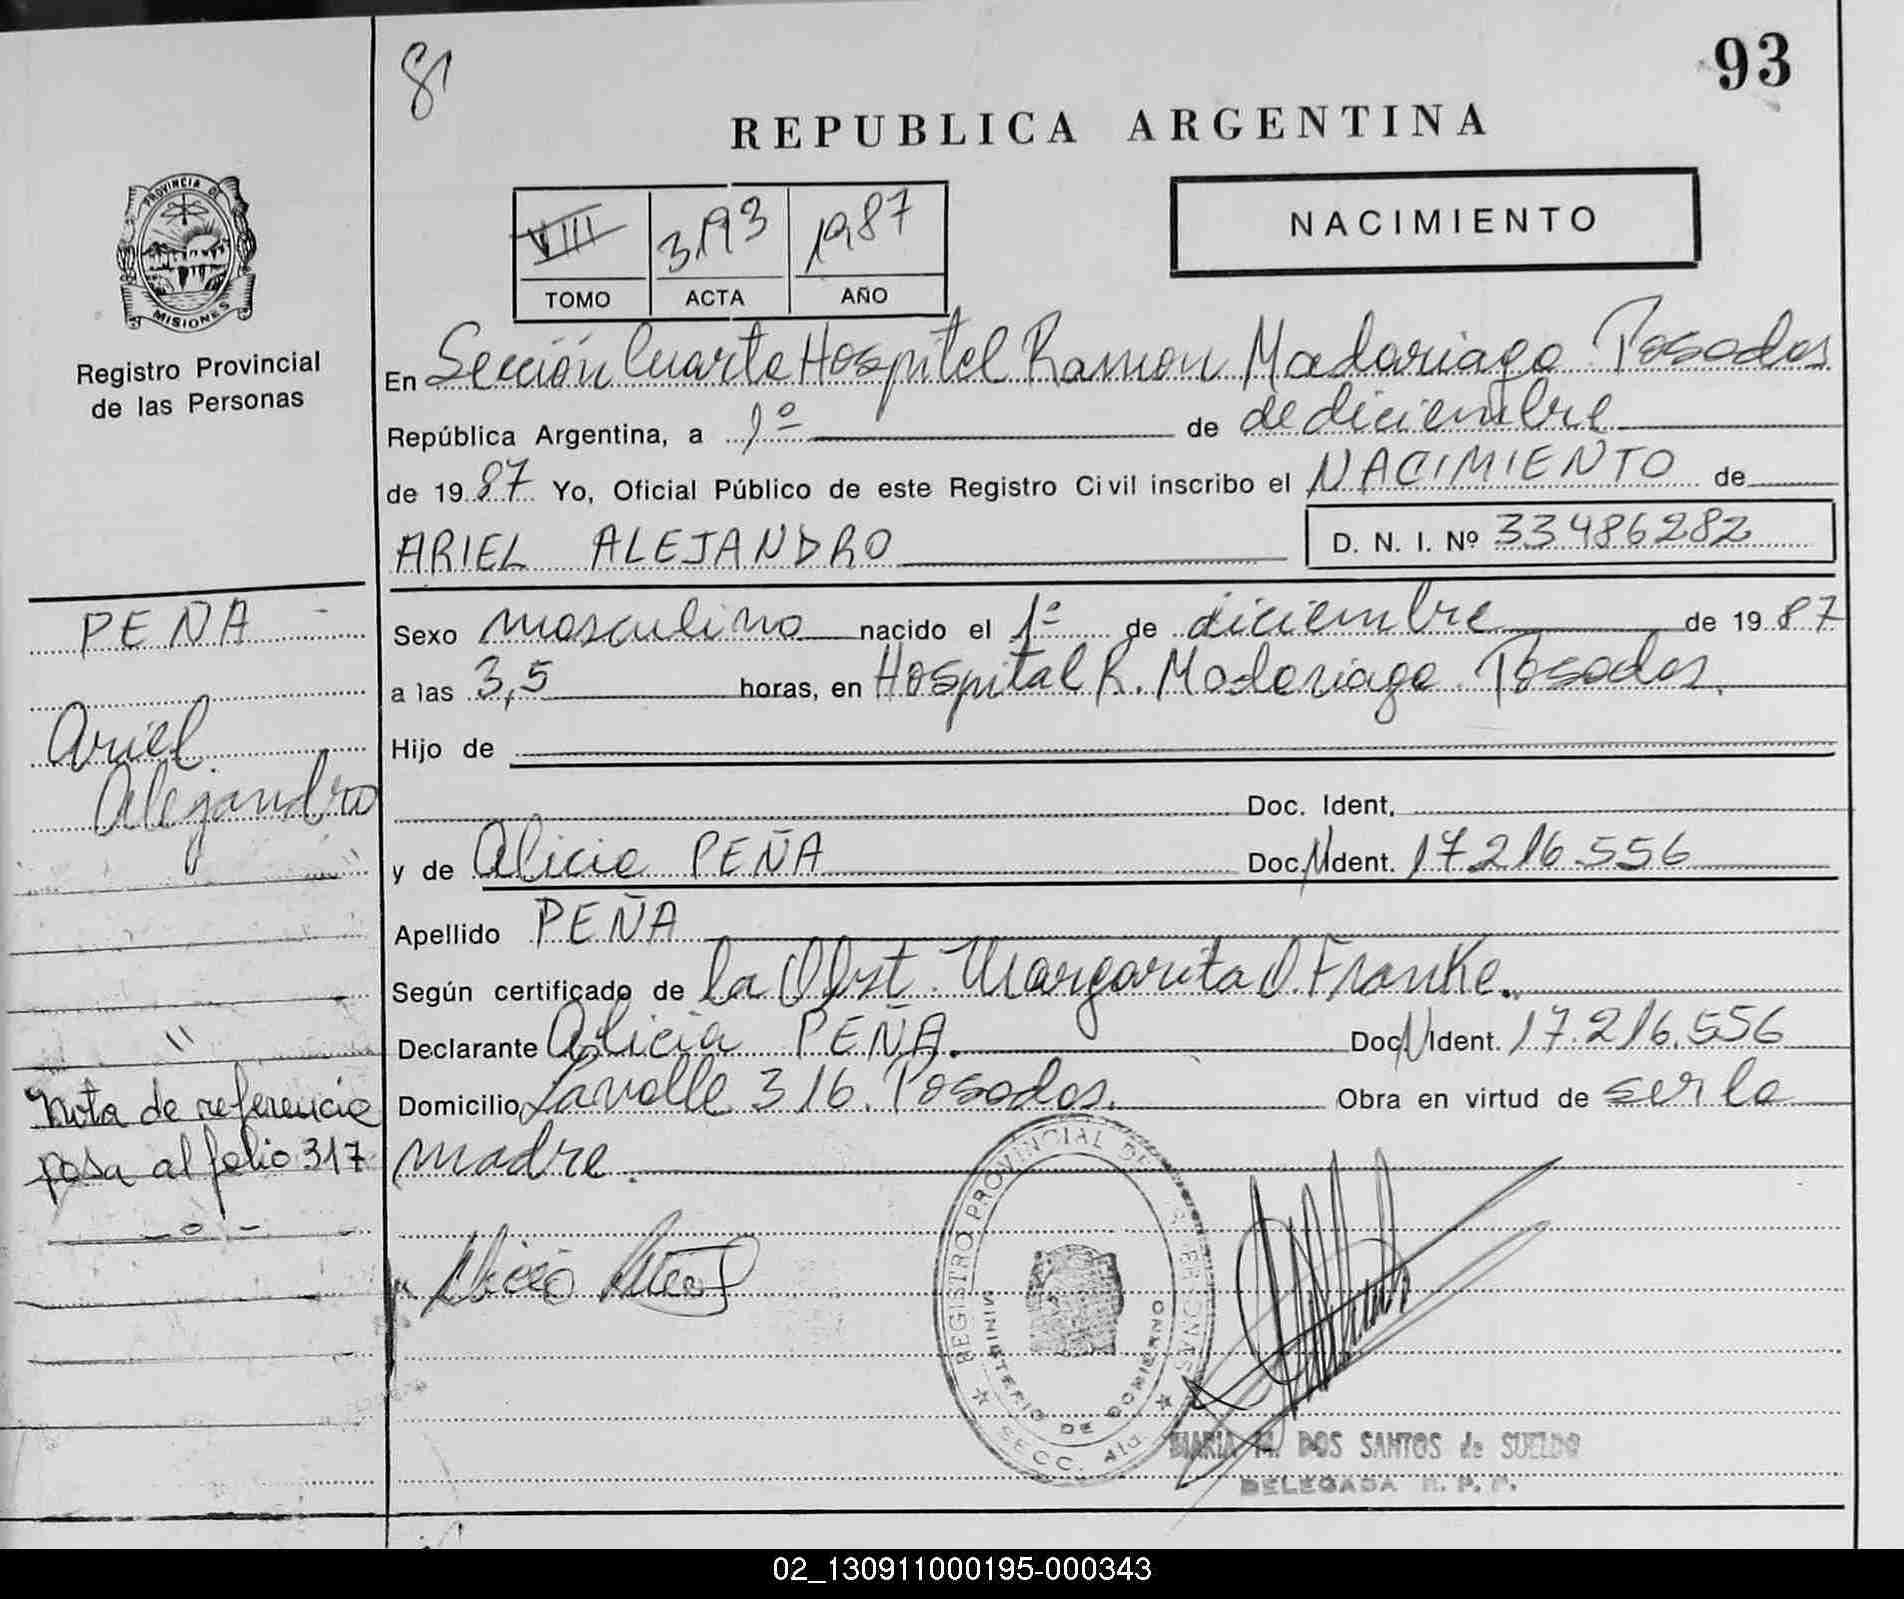 81
93
REPUBLICA ARGENTINA
PROVINCIA DE
MISIONES
Registro Provincial
de las Personas
VIII 3193 1987
TOMO ACTA AÑO
NACIMIENTO
En Sección Cuarta Hospital Ramon Madariaga. Posadas
República Argentina, a 1º de de diciembre
de 1987 Yo, Oficial Público de este Registro Civil inscribo el NACIMIENTO de
ARIEL ALEJANDRO D. N. I. Nº 33486282
PEÑA
Ariel
Alejandro
Sexo masculino nacido el 1º de diciembre de 1987
a las 3,5 horas, en Hospital R. Madariaga. Posadas.
Hijo de
Doc. Ident,
y de Alicia PEÑA Doc.N Ident. 17.216.556
Apellido PEÑA
Según certificado de la Obst. Margarita O. Franke.
Declarante Alicia PEÑA. Doc N Ident. 17.216.556
Domicilio Lavalle 316. Posadas. Obra en virtud de ser la
madre.
Nota de referencia
pasa al folio 317
-o-
Alicia
REGISTRO PROVINCIAL DE PERSONAS
MINISTERIO DE GOBIERNO
SECC. 4ta
MARIA M. DOS SANTOS de SUELDO
DELEGADA R. P. P.
02_130911000195-000343